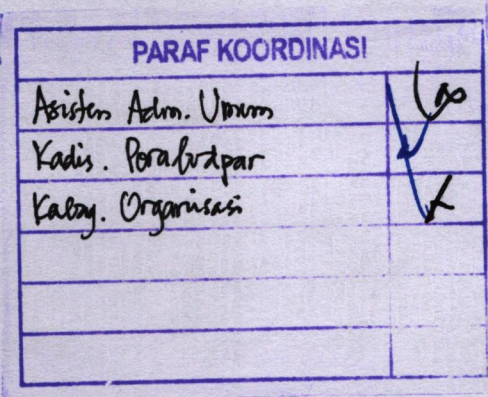 PARAF KOORDINASI
Asisten Adm. Umum
Kadis. Porabudpar
Kabag. Organisasi